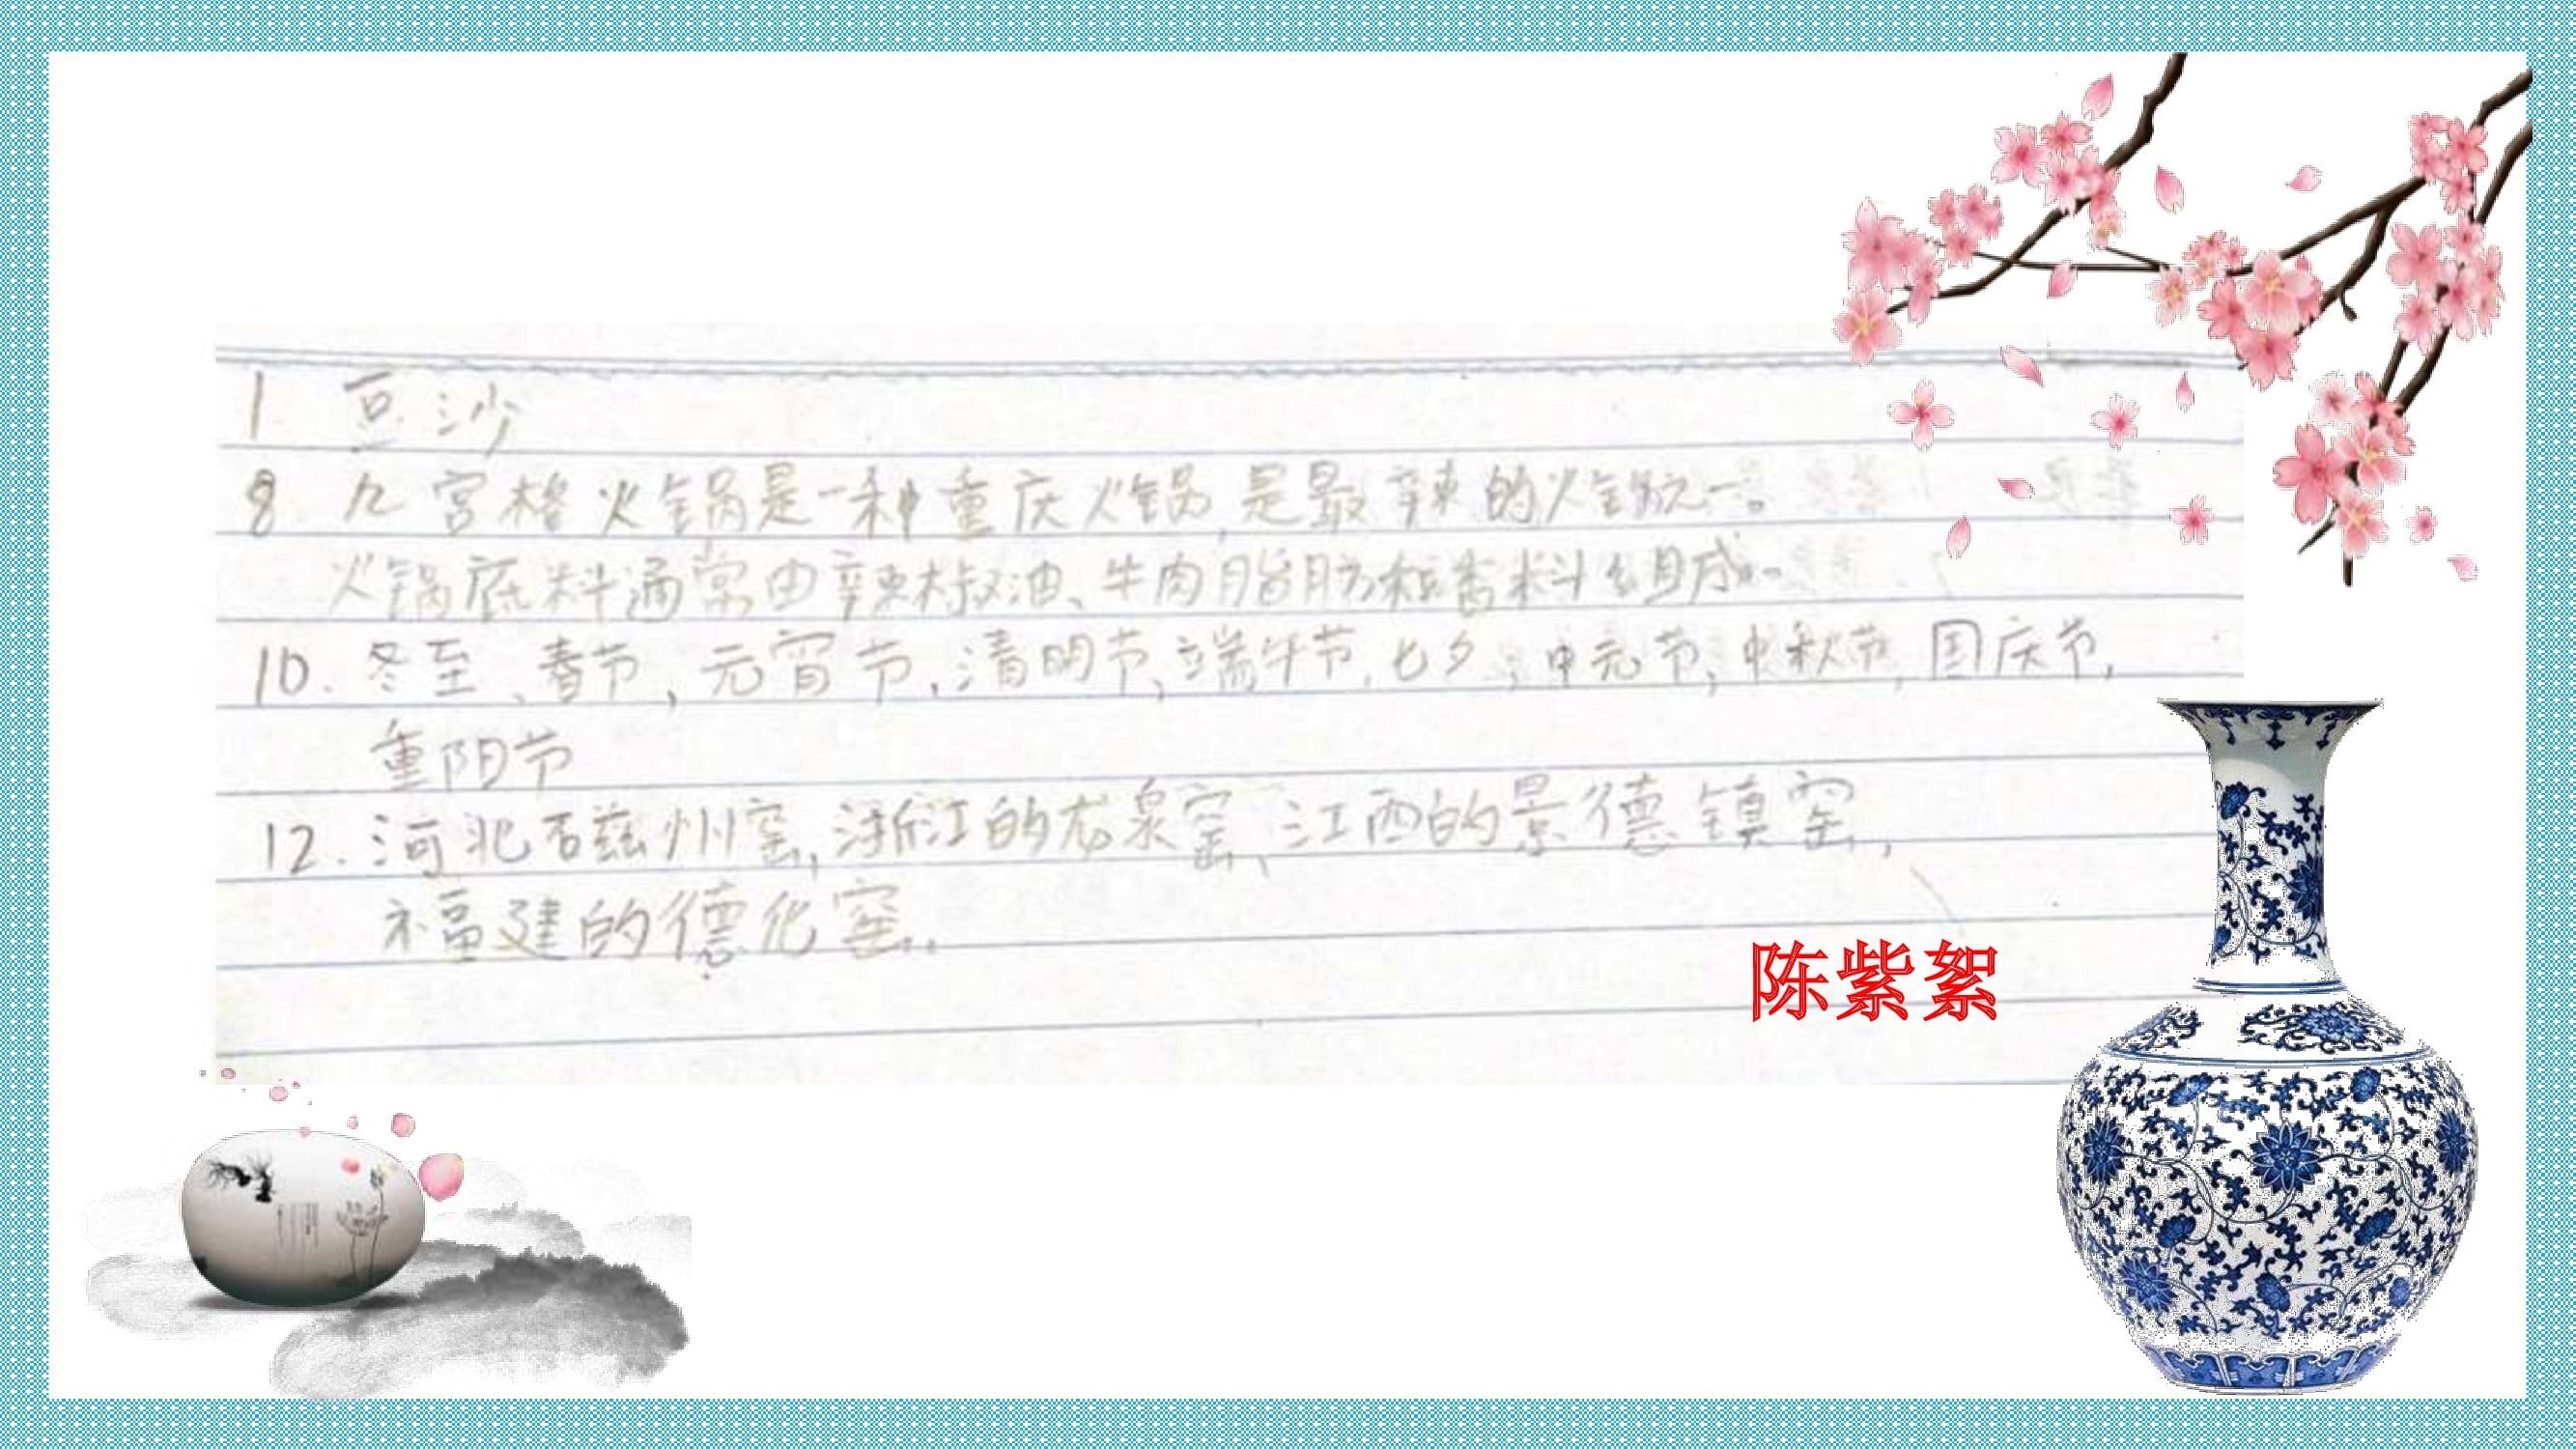 1. 豆沙
8. 九宫格火锅是一种重庆火锅,是最辣的火锅之一。
火锅底料通常由辣椒油、牛肉脂肪和香料组成。
10. 冬至、春节、元宵节、清明节、端午节、七夕、中元节、中秋节、国庆节,
重阳节
12. 河北磁州窑,浙江的龙泉窑、江西的景德镇窑,
福建的德化窑。
陈紫絮